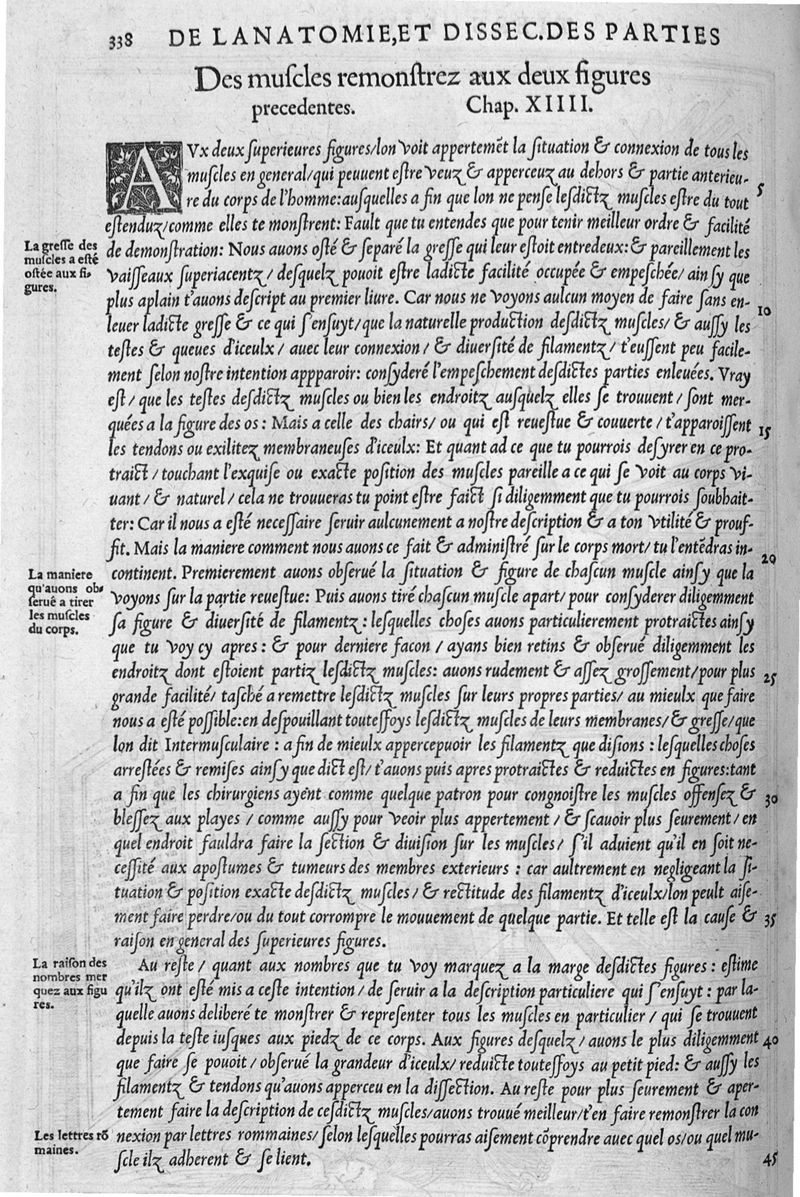 338 DE LANATOMIE, ET DISSEC. DES PARTIES
Des muſcles remonſtrez aux deux figures
precedentes. Chap. XIIII.
AVx deux ſuperieures figures/lon voit appertemẽt la ſituation & connexion de tous les
muſcles en general/qui peuuent eſtre veuz & apperceuz au dehors & partie anterieu-
re du corps de l'homme: auſquelles a fin que lon ne penſe leſdictz muſcles eſtre du tout
5
eſtenduz/comme elles te monſtrent: Fault que tu entendes que pour tenir meilleur ordre & facilité
La greſſe des
muſcles a eſté
oſtée aux fi-
gures.
de demonſtration: Nous auons oſté & ſeparé la greſſe qui leur eſtoit entredeux: & pareillement les
vaiſſeaux ſuperiacentz/ deſquelz pouoit eſtre ladicte facilité occupée & empeſchée/ ainſy que
plus aplain t'auons deſcript au premier liure. Car nous ne voyons aulcun moyen de faire ſans en-
10
leuer ladicte greſſe & ce qui ſ'enſuyt/que la naturelle production deſdictz muſcles/ & auſſy les
teſtes & queues d'iceulx/ auec leur connexion/ & diuerſité de filamentz/ t'euſſent peu facile-
ment ſelon noſtre intention appparoir: conſyderé l'empeſchement deſdictes parties enleuées. Vray
eſt/ que les teſtes deſdictz muſcles ou bien les endroitz auſquelz elles ſe trouuent/ ſont mer-
quées a la figure des os: Mais a celle des chairs/ ou qui eſt reueſtue & couuerte/ t'apparoiſſent
15
les tendons ou exilitez membraneuſes d'iceulx: Et quant ad ce que tu pourrois deſyrer en ce pro-
traict/ touchant l'exquiſe ou exacte poſition des muſcles pareille a ce qui ſe voit au corps vi-
uant/ & naturel/ cela ne trouueras tu point eſtre faict ſi diligemment que tu pourrois ſoubhait-
ter: Car il nous a eſté neceſſaire ſeruir aulcunement a noſtre deſcription & a ton vtilité & prouf-
fit. Mais la maniere comment nous auons ce fait & adminiſtré ſur le corps mort/ tu l'entẽdras in-
20
La maniere
qu'auons ob-
ſerué a tirer
les muſcles
du corps.
continent. Premierement auons obſerué la ſituation & figure de chaſcun muſcle ainſy que la
voyons ſur la partie reueſtue: Puis auons tiré chaſcun muſcle apart/ pour conſyderer diligemment
ſa figure & diuerſité de filamentz: leſquelles choſes auons particulierement protraictes ainſy
que tu voy cy apres: & pour derniere facon/ ayans bien retins & obſerué diligemment les
endroitz dont eſtoient partiz leſdictz muſcles: auons rudement & aſſez groſſement/pour plus
25
grande facilité/ taſché a remettre leſdictz muſcles ſur leurs propres parties/ au mieulx que faire
nous a eſté poſſible: en deſpouillant touteſfoys leſdictz muſcles de leurs membranes/ & greſſe/que
lon dit Intermuſculaire: a fin de mieulx appercepuoir les filamentz que diſions: leſquelles choſes
arreſtées & remiſes ainſy que dict eſt/ t'auons puis apres protraictes & reduictes en figures: tant
a fin que les chirurgiens ayẽnt comme quelque patron pour congnoiſtre les muſcles offenſez &
30
bleſſez aux playes/ comme auſſy pour veoir plus appertement/ & ſcauoir plus ſeurement/ en
quel endroit fauldra faire la ſection & diuiſion ſur les muſcles/ ſ'il aduient qu'il en ſoit ne-
ceſſité aux apoſtumes & tumeurs des membres exterieurs: car aultrement en negligeant la ſi-
tuation & poſition exacte deſdictz muſcles/ & rectitude des filamentz d'iceulx/lon peult aiſe-
ment faire perdre/ou du tout corrompre le mouuement de quelque partie. Et telle eſt la cauſe &
35
raiſon en general des ſuperieures figures.
La raiſon des
nombres mer
quez aux figu
res.
Au reſte/ quant aux nombres que tu voy marquez a la marge deſdictes figures: eſtime
qu'ilz ont eſté mis a ceſte intention/ de ſeruir a la deſcription particuliere qui ſ'enſuyt: par la-
quelle auons deliberé te monſtrer & repreſenter tous les muſcles en particulier/ qui ſe trouuent
depuis la teſte iuſques aux piedz de ce corps. Aux figures deſquelz/ auons le plus diligemment
40
que faire ſe pouoit/ obſerué la grandeur d'iceulx/ reduicte touteſfoys au petit pied: & auſſy les
filamentz & tendons qu'auons apperceu en la diſſection. Au reſte pour plus ſeurement & aper-
tement faire la deſcription de ceſdictz muſcles/auons trouué meilleur/t'en faire remonſtrer la con
Les lettres rõ
maines.
nexion par lettres rommaines/ ſelon leſquelles pourras aiſement cõprendre auec quel os/ou quel mu-
ſcle ilz adherent & ſe lient.
45